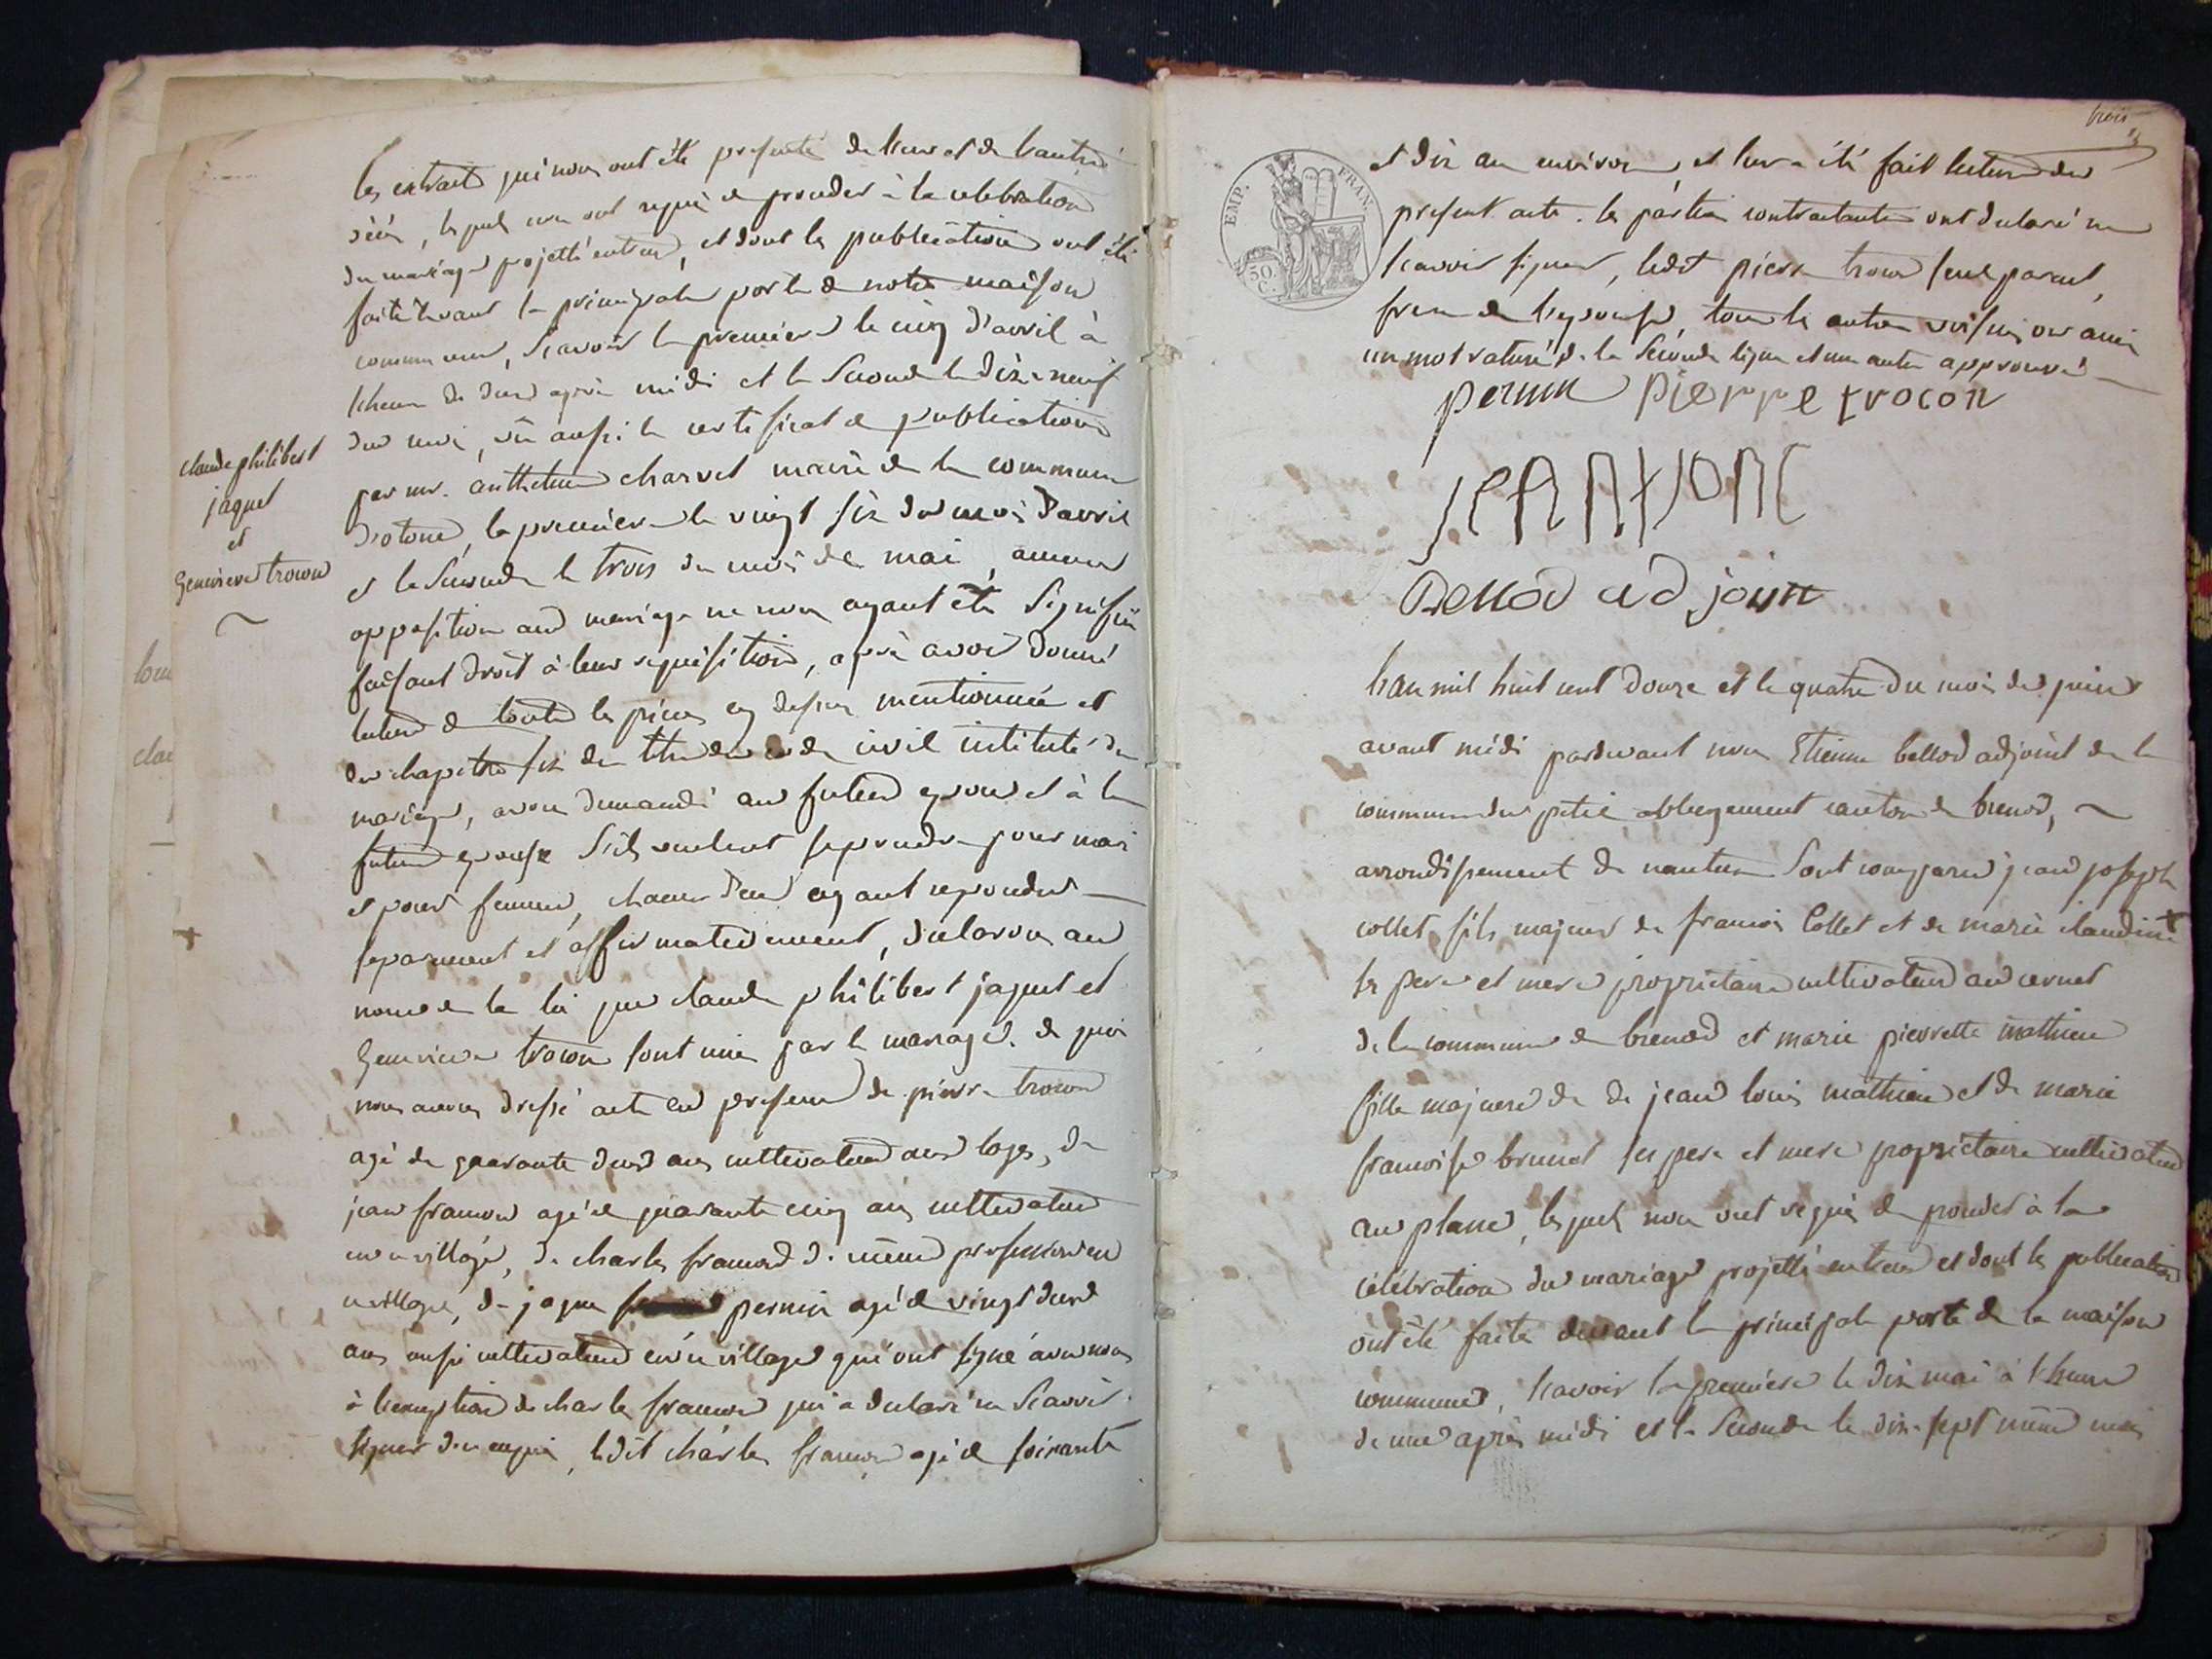 les extraits qui nous ont été presenté de l'un et de l'autre
décés, lesquels nous ont requis de proceder à la celebration
du mariage projetté entreux, et dont les publications ont été
faite devant la principale porte de notre maison
commune, scavoir la premiere le cinq d'avril à
l'heure de deux après midi et la seconde le dix neuf
du mois, vu aussi le certificat de publications
par mr. anthelme charvet maire de la commune
d'otone, la premiere le vingt six du mois d'avril
et la seconde le trois du mois de mai, aucune
opposition aud mariage ne nous ayant été signifiée
faisant droit à leur requisition, après avoir donné
lecture de toutes les pieces cy dessus mentionnée et
du chapitre six du titre du code civil intitulé du
mariage, avons demandé au futur epoux et à la
future epouse s'ils veulent se prendre pour mari
et pour femme, chacun d'eux ayant repondus
separement et affirmativement, declarons aud
nom de la loi que claude philibert jaquet et
Genevieve trocon sont unis par le mariage. de quoi
nous avons dressé acte en presence de pierre trocon
agé de quarante deux ans cultivateur aux loges, de
jean francon agé de quarante cinq ans cultivateur
en ce village, de charles francon de même profession en
ce village, de jaque pernin agé de vingt deux
ans aussi cultivateur en ce village qui ont signé avec nous
à l'exeption de charles francon qui a declaré ne scavoir
signer de ce enquis, ledit charles francon agé de soixante
claude philibert
jaquet
et
Genevieve trocon
trois
EMP. FRAN.
50 C.
et dix ans environ, et leur a été fait lecture du
present acte. les parties contractantes ont declaré ne
scavoir signer, ledit pierre trocon seul parent,
frere de l'epouse, tous les autres voisins ou amis
un mot raturé de la seconde ligne et un autre approuvé
pernin pierre trocon
Bellod adjoint
L'an mil huit cent douze et le quatre du mois de juin
avant midi pardevant nous Etienne bellod adjoint de la
commune du petit abbergement canton de brenod,
arrondissement de nantua sont comparus jean joseph
collet fils majeur de francois Collet et de marie claudine
ses pere et mere proprietaire cultivateur au cernet
de la commune de brenod et marie pierrette mathieu
fille majeure de de jean louis mathieu et de marie
francoise brunet ses pere et mere proprietaire cultivateur
au plane, lesquels nous ont requis de proceder à la
celebration du mariage projetté entreux et dont les publications
ont été faite devant la principale porte de la maison
commune, scavoir la premiere le dix mai à l'heure
de une après midi et la seconde le dix-sept même mois